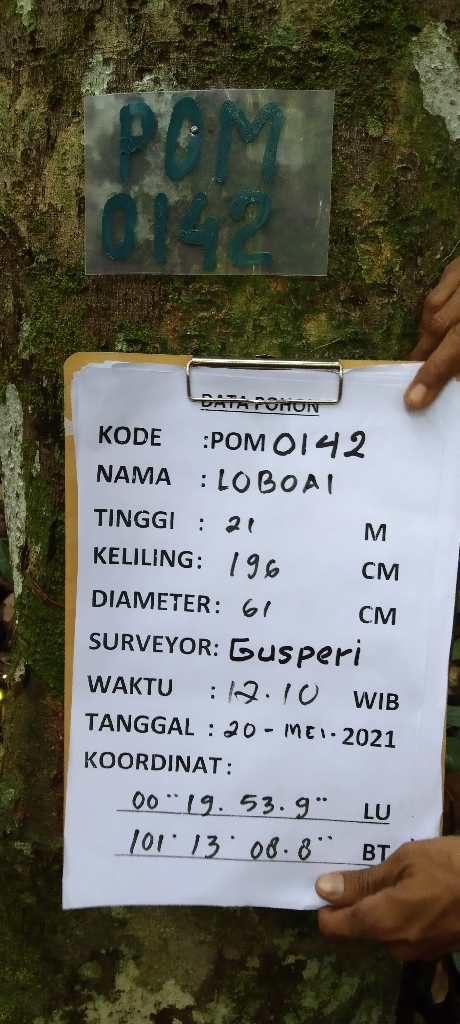 POM
0142
DATA POHON
KODE :POM 0142
NAMA : LOBOAI
TINGGI : 21 M
KELILING: 196 CM
DIAMETER: 61 CM
SURVEYOR: Gusperi
WAKTU : 12.10 WIB
TANGGAL : 20 - MEI. 2021
KOORDINAT:
00 ¨ 19. 53.9 ¨ LU
101 ˙ 13 ˙ 08.8 ¨ BT